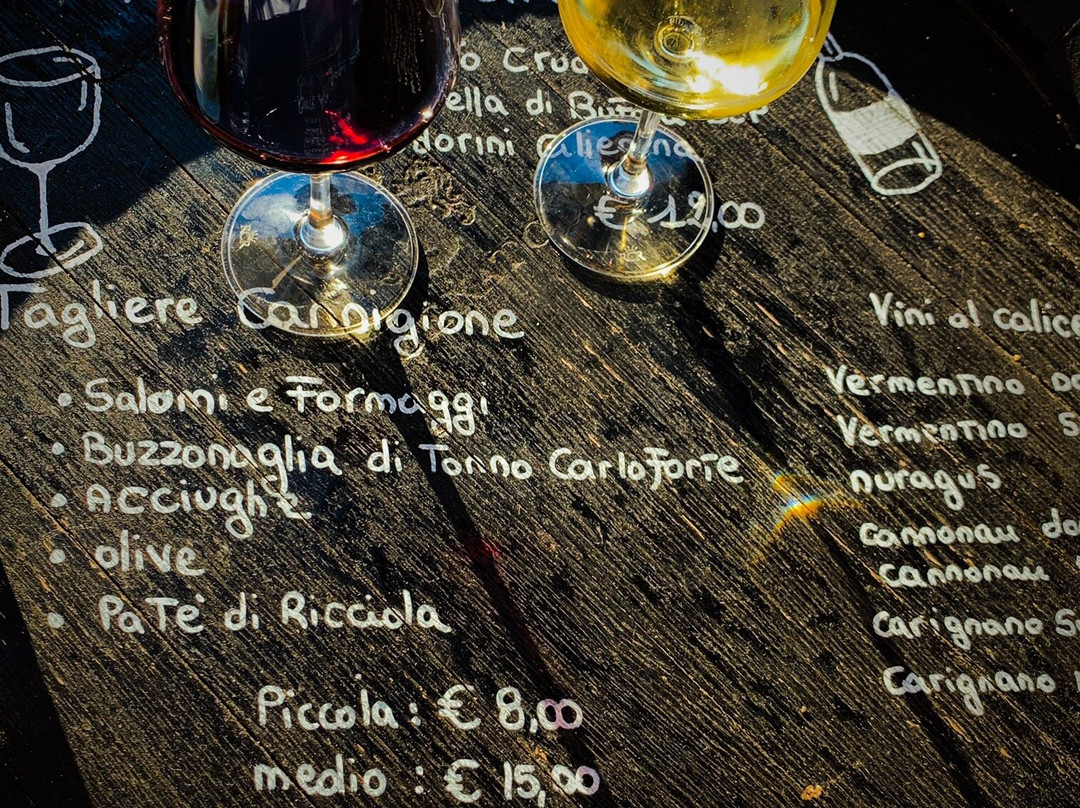 o Crud
ella di Bufala DOP
dorini
€ 12,00
Tagliere Carpigione
• Salami e Formaggi
• Buzzonaglia di Tonno Carloforte
• Acciughe
• olive
• PaTè di Ricciola
Piccola: € 8,00
medio : € 15,00
Vini al calice
Vermentino
Vermentino S
nuragus
Cannonau do
Cannonau
Carignano S
Carignano